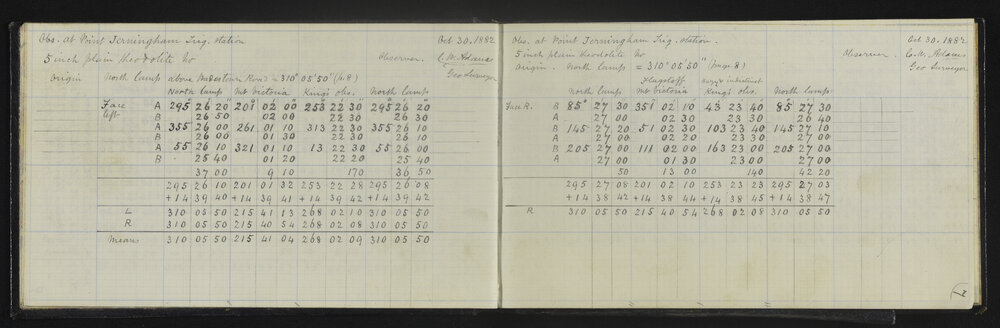 Obs. at Point Jerningham Trig. station Oct 30. 1882
5 inch plain theodolite No Observer. C.W. Adams
Geo Surveyor
Origin North Lamp above = 310° 05' 50" (p. 8)
North Lamp Mt Victoria King's obs. North Lamp
Face left A 295° 26 20" 201° 02 00" 253 22 30 295 26 20
B 26 50 02 00 22 30 26 30
A 355 26 00 261 01 10 313 22 30 355 26 10
B 26 00 01 30 22 30 26 10
A 55 26 10 321 01 10 13 22 30 55 26 00
B 25 40 01 20 22 20 25 40
37 00 9 10 170 36 50
295 26 10 201 01 32 253 22 28 295 26 08
+14 39 40 +14 39 41 +14 39 42 +14 39 42
L 310 05 50 215 41 13 268 02 10 310 05 50
R 310 05 50 215 40 54 268 02 08 310 05 50
Means 310 05 50 215 41 04 268 02 09 310 05 50
Obs. at Point Jerningham Trig. station. Oct 30. 1882
5 inch plain theodolite No Observer C.W. Adams
Geo Surveyor
Origin. North Lamp = 310° 05' 50" (page 8)
Flagstaff indistinct
North Lamp Mt Victoria King's obs. North Lamp
Face R. B 85° 27 30 351 02 10 43 23 40 85 27 30
A 27 00 02 30 23 30 26 40
B 145 27 20 51 02 30 103 23 40 145 27 10
A 27 00 02 20 23 30 27 00
B 205 27 00 111 02 00 163 23 00 205 27 00
A 27 00 01 30 23 00 27 00
50 13 00 140 42 20
295 27 08 201 02 10 253 23 23 295 27 03
+14 38 42 +14 38 44 +14 38 45 +14 38 47
R 310 05 50 215 40 54 268 02 08 310 05 50